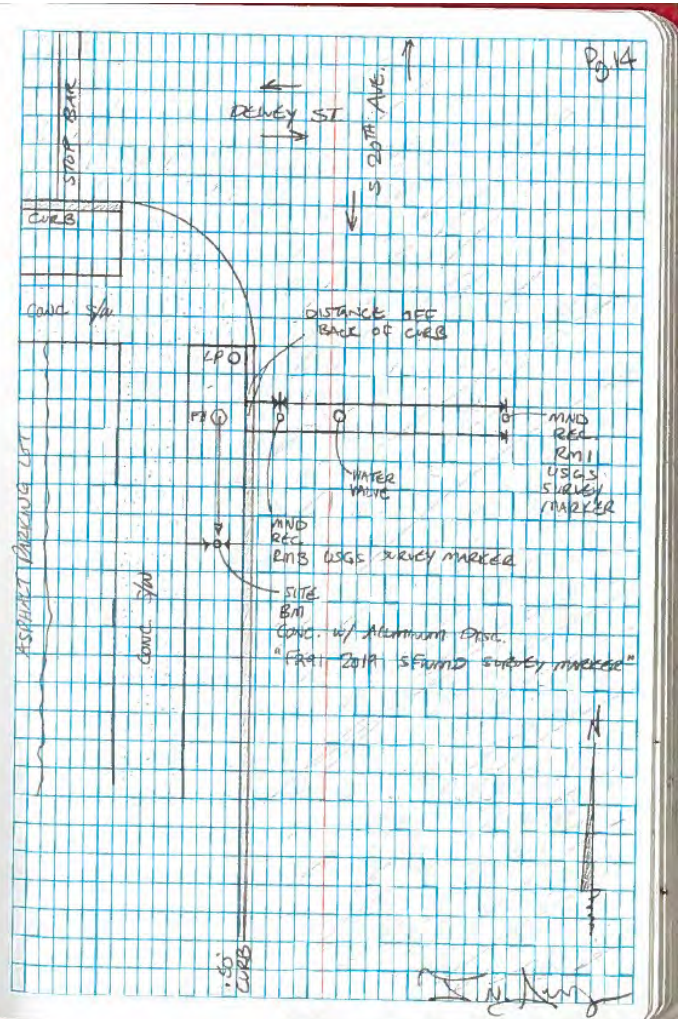 Pg. 14
STOP BAR
DEWEY ST
S 20TH AVE.
CURB
CONC S/W
DISTANCE OFF
BACK OF CURB
LP
FH
MND
REC
RM1
USGS
SURVEY
MARKER
WATER
VALVE
MND
REC
RM3 USGS SURVEY MARKER
SITE
BM
CONC. W/ ALUMINUM DISC.
"F291 2019 SFWMD SURVEY MARKER"
ASPHALT PARKING LOT
CONC. S/W
N
.50'
CURB